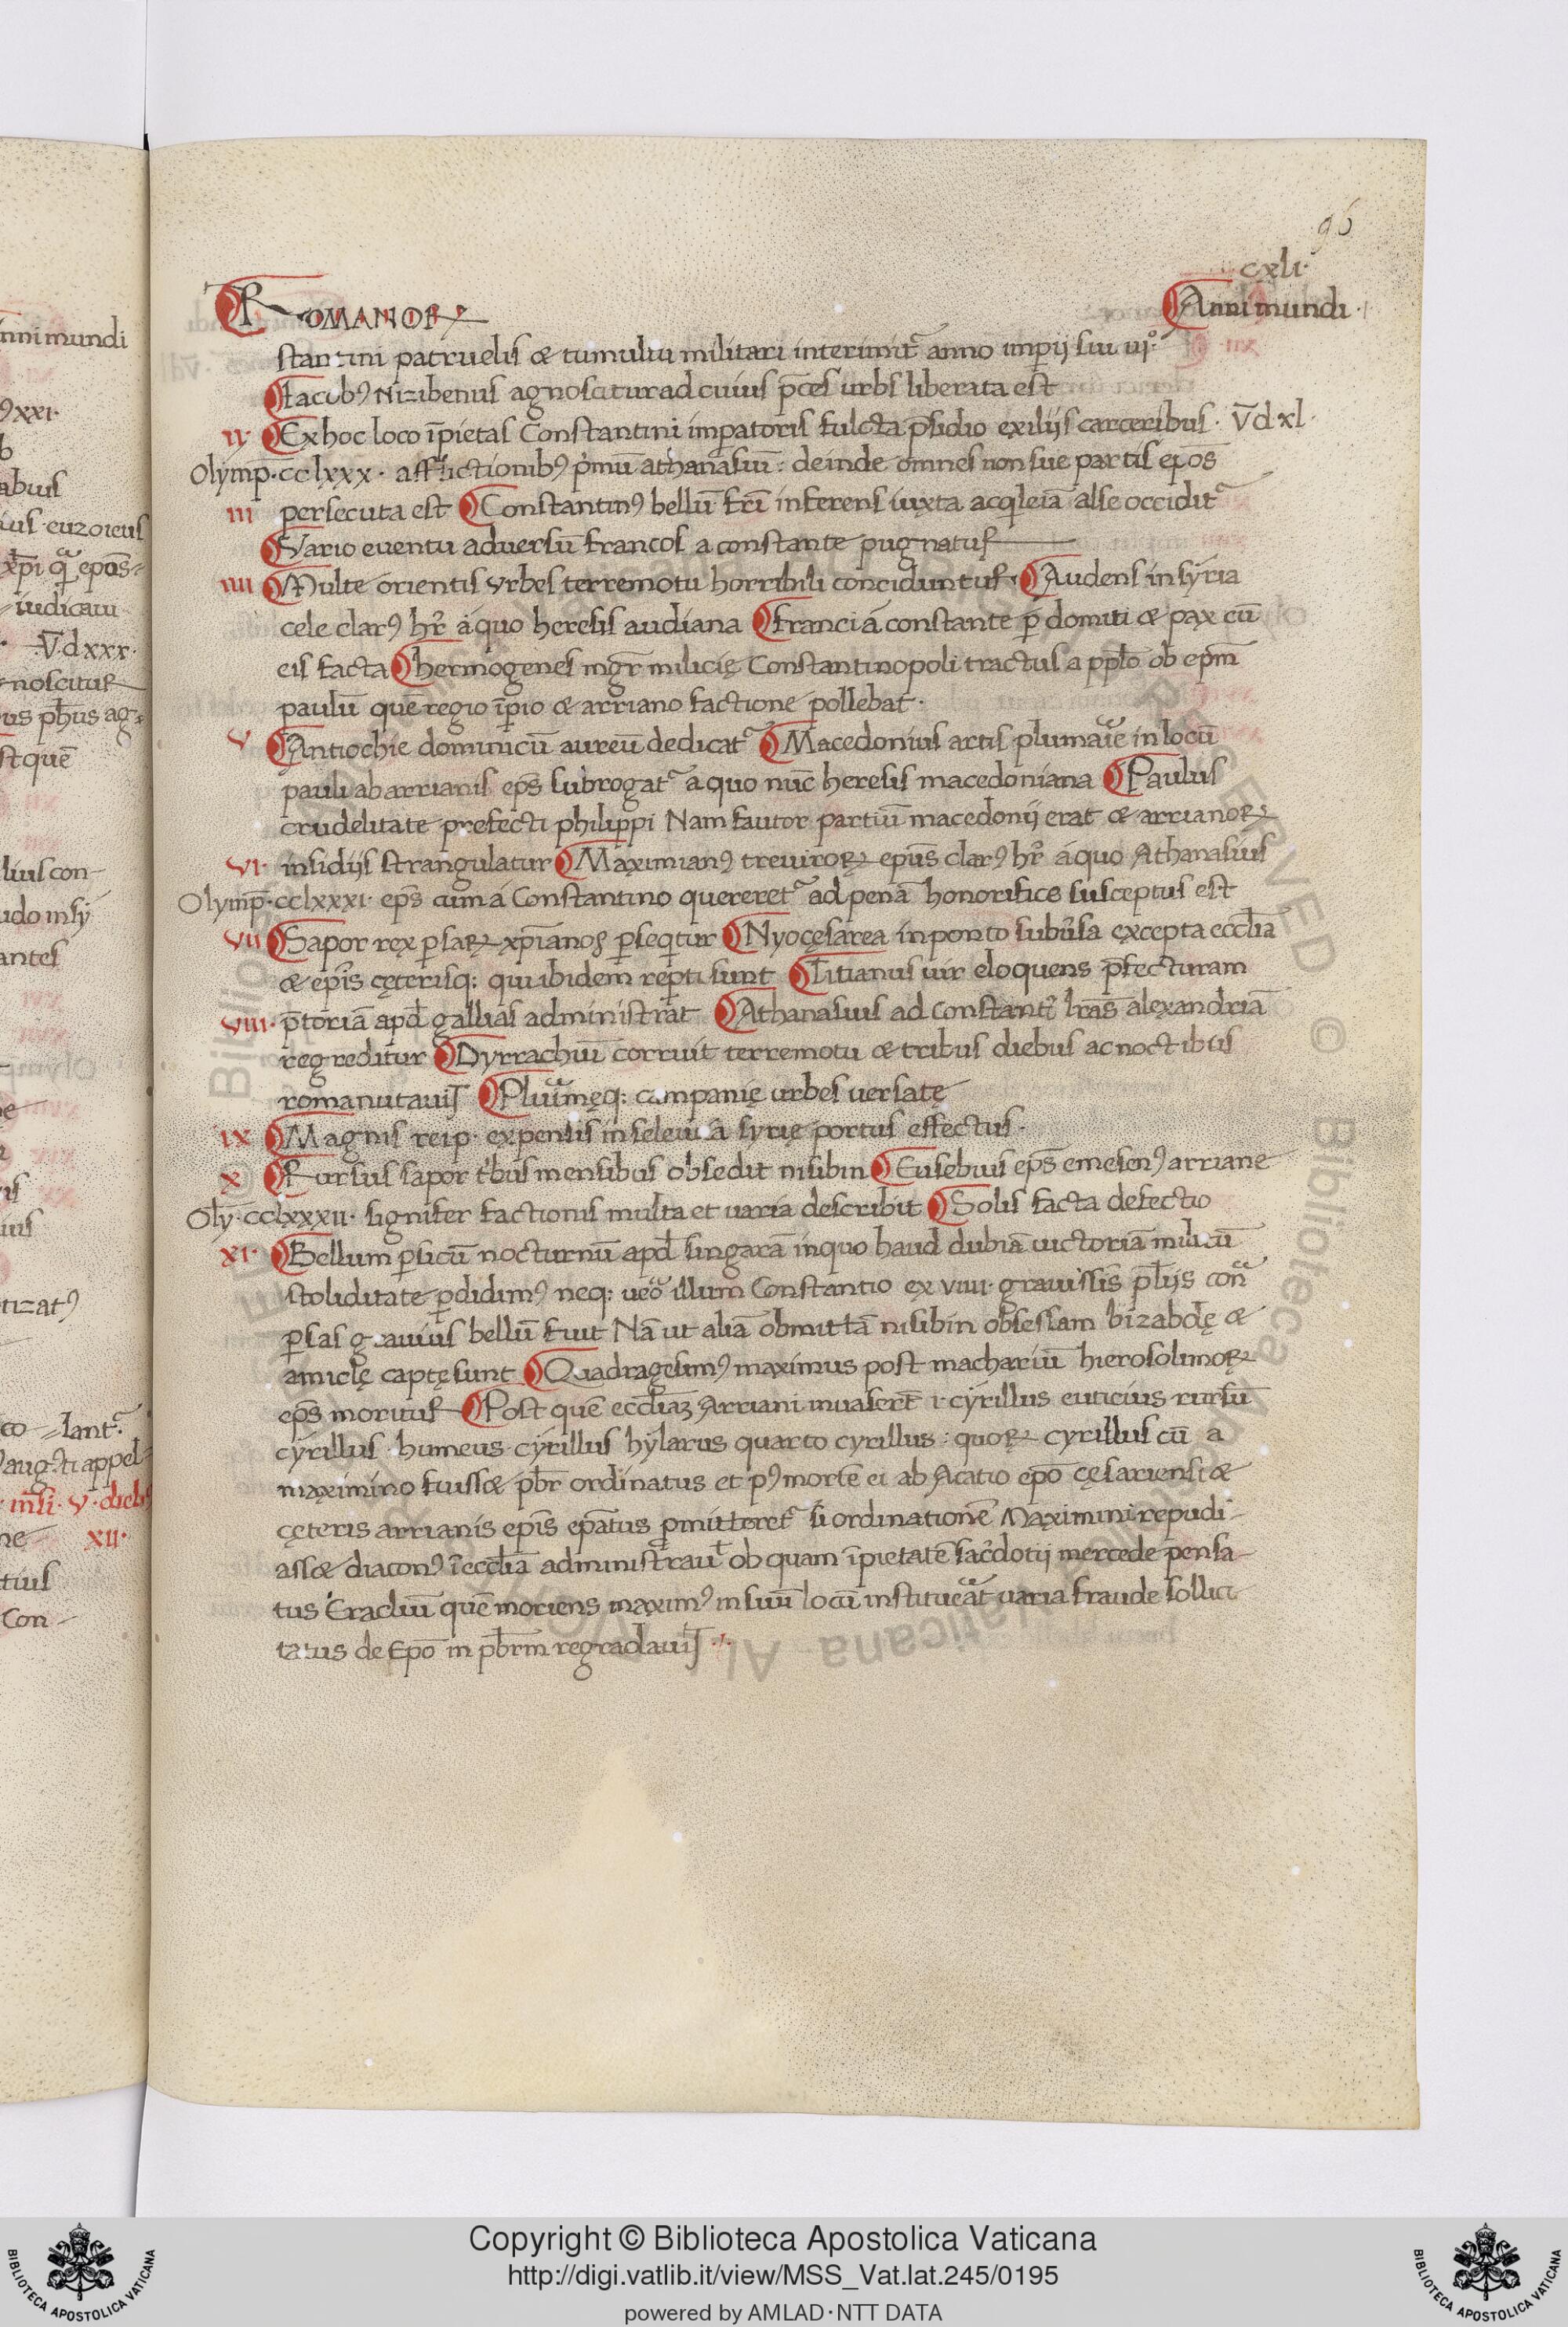 96
cxli·
Romanoꝝ Anni mundi·
stantini patruelis & tumultu militari interimit᷑ anno imperij sui iij°·
Iacob⁹ Nizibenus agnoscitur ad cuius p̄ces urbs liberata est
ii· Ex hoc loco īpietas Constantini imꝑatoris fulcta p̄sidio exiliis carceribus· V̄dxl·
Olymp̄·cclxxx· afflictionib⁹ p̓mū athanasiū: deinde omnes non sue partis ep̄os
iii persecuta est Constantin⁹ bellū fr̄i inferens iuxta acq̓leiā alse occidit᷑
Vario eventu adversū francos a constante pugnatur
iiii Multe orientis urbes terremotu horribili conciduntur· Audens in syria
cele clar⁹ hr̄ a quo heresis audiana franci á constante ꝑ domiti & pax cū
eis facta hermogenes mgr̄ milicię Constantinopoli tractus a pplo ob epm̄
paulū quē regio īꝑio & arriano factione pollebat·
v Antiochie dominicū aureū dedicat᷑ Macedonius artis plumaꝛie in locū
pauli ab arrianis ep̄s subrogat᷑ a quo nūc heresis macedoniana Paulus
crudelitate prefecti philippi Nam fautor partiū macedonij erat & arrianoꝝ
vi· insidijs strangulatur Maximian⁹ treviroꝝ epūs clar⁹ hr̄ á quo Athanasius
Olymp̄·cclxxxi· ep̄s cum á Constantino quereret᷑ ad penā honorifice susceptus est
vii Sapor rex ꝑsaꝝ xp̄ianos ꝑseqitur Nyocęsarea in ponto subv̓sa excepta eccl̄ia
& ep̄is cęterisq: qui ibidem reꝑti sunt Titianus uir eloquens p̄fecturam
viii· p̄toriā apd̄ gallias administrat Athanasius ad Constantı̓ lr̄as alexandriā
regreditur Dyrrachiū corruit terremotu & tribus diebus ac noctibus
roma nutauiſ Pluꝛimęq: campanię urbes uersatę
ix Magnis reip· expensis in seleucia syrię portus effectus·
x Rursus sapor tⁱbus mensibus obsedit nisibin Eusebius ep̄s emesen⁹ arriane
Oly·cclxxxii· signifer factionis multa et uaria describit Solis facta defectio
xi· Bellum ꝑsicū nocturnū apd̄ singarā in quo haud dubiā uictoriā militū
stoliditate ꝑdidim⁹ neq: ueꝛo illum Constantio ex viiii· grauissis pl̄ijs conᵃ
ꝑsas grauius bellū fuit Nā ut aliā obmittā nisibin obsessam bizabdę &
amiclę captę sunt Quadragesim⁹ maximus post machariū hierosolimoꝝ
ep̄s moritur Post quē eccl̄iaꝫ Arriani inuaserēt i· cyrillus euticius rursū
cyrillus· hirneus· cyrillus hylarus quarto cyrillus: quoꝝ cyrillus cū a
maximino fuiss& pb̄r ordinatus et p⁹ mortē ei ab Acatio ep̄o cęsariensi &
cęteris arrianis ep̄is ep̄atus ꝓmitteret᷑ si ordinationē Maximini repudi-
ass& diacon⁹ ī eccl̄ia administrauͭ ob quam īpietatē sac̓dotij mercede pensa-
tus Eracliū quē moriens maxim⁹ in suū locū institueꝛat uaria fraude sollici
tatus de Ep̄o in pb̄rm regradauiſ·:·
Copyright © Biblioteca Apostolica Vaticana
http://digi.vatlib.it/view/MSS_Vat.lat.245/0195
powered by AMLAD·NTT DATA
BIBLIOTECA APOSTOLICA VATICANA
BIBLIOTECA APOSTOLICA VATICANA